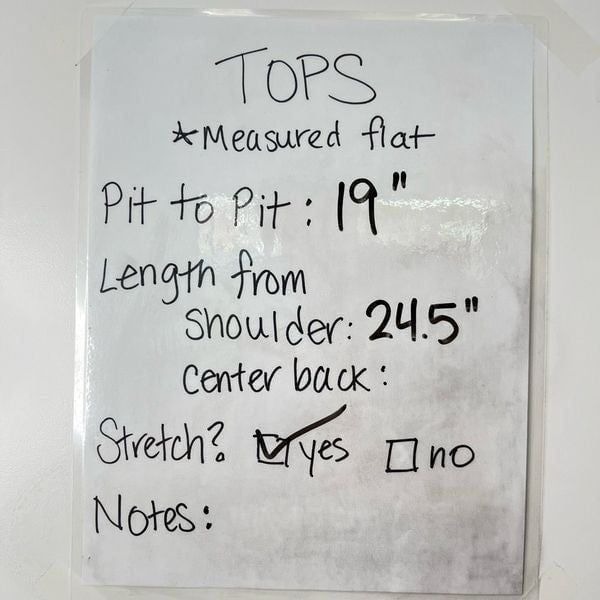 TOPS
*Measured flat
Pit to Pit: 19"
Length from
Shoulder: 24.5"
Center back:
Stretch? ☑ yes ☐ no
Notes: